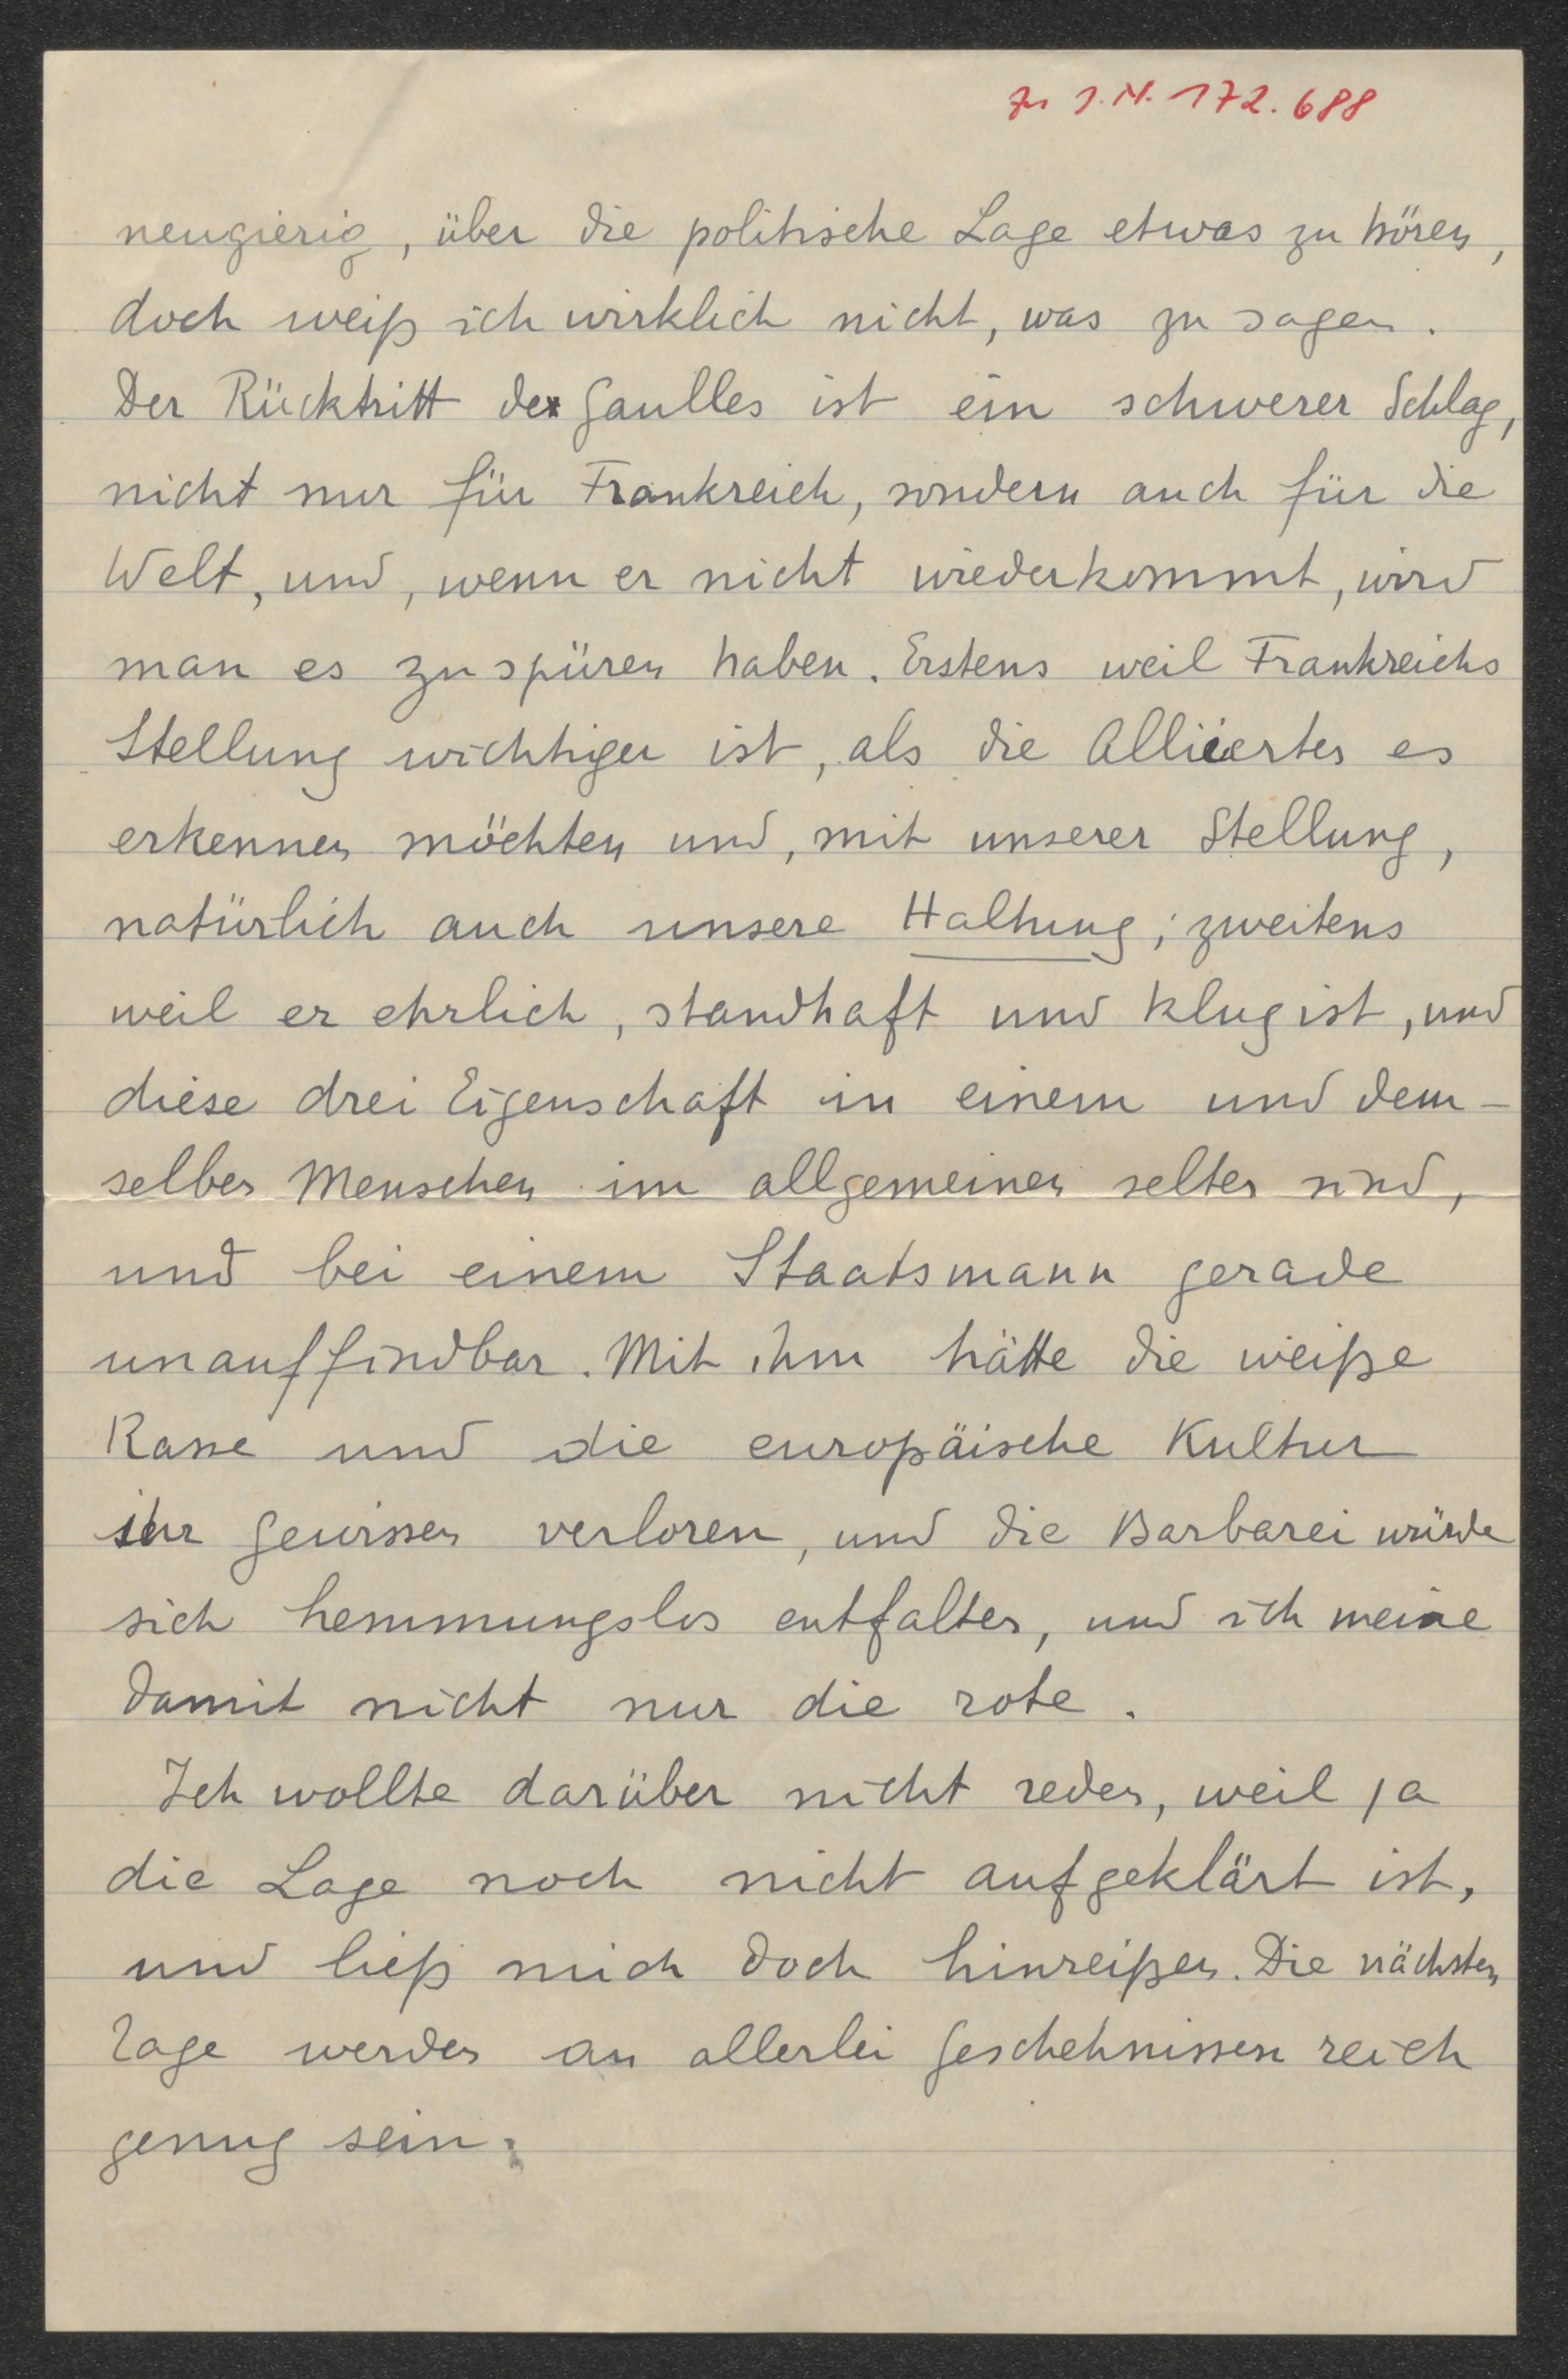 zu I.N. 172.688
neugierig, über die politische Lage etwas zu hören,
doch weiß ich wirklich nicht, was zu sagen.
Der Rücktritt de Gaulles ist ein schwerer Schlag,
nicht nur für Frankreich, sondern auch für die
Welt, und, wenn er nicht wiederkommt, wird
man es zu spüren haben. Erstens weil Frankreichs
Stellung wichtiger ist, als die Alliierten es
erkennen möchten und, mit unserer Stellung,
natürlich auch unsere Haltung; zweitens
weil er ehrlich, standhaft und klug ist, und
diese drei Eigenschaft in einem und dem-
selben Menschen im allgemeinen selten sind,
und bei einem Staatsmann gerade
unauffindbar. Mit ihm hätte die weiße
Rasse und die europäische Kultur
ihr Gewissen verloren, und die Barbarei würde
sich hemmungslos entfalten, und ich meine
damit nicht nur die rote.
Ich wollte darüber nicht reden, weil ja
die Lage noch nicht aufgeklärt ist,
und ließ mich doch hinreißen. Die nächsten
Tage werden an allerlei Geschehnissen reich
genug sein.